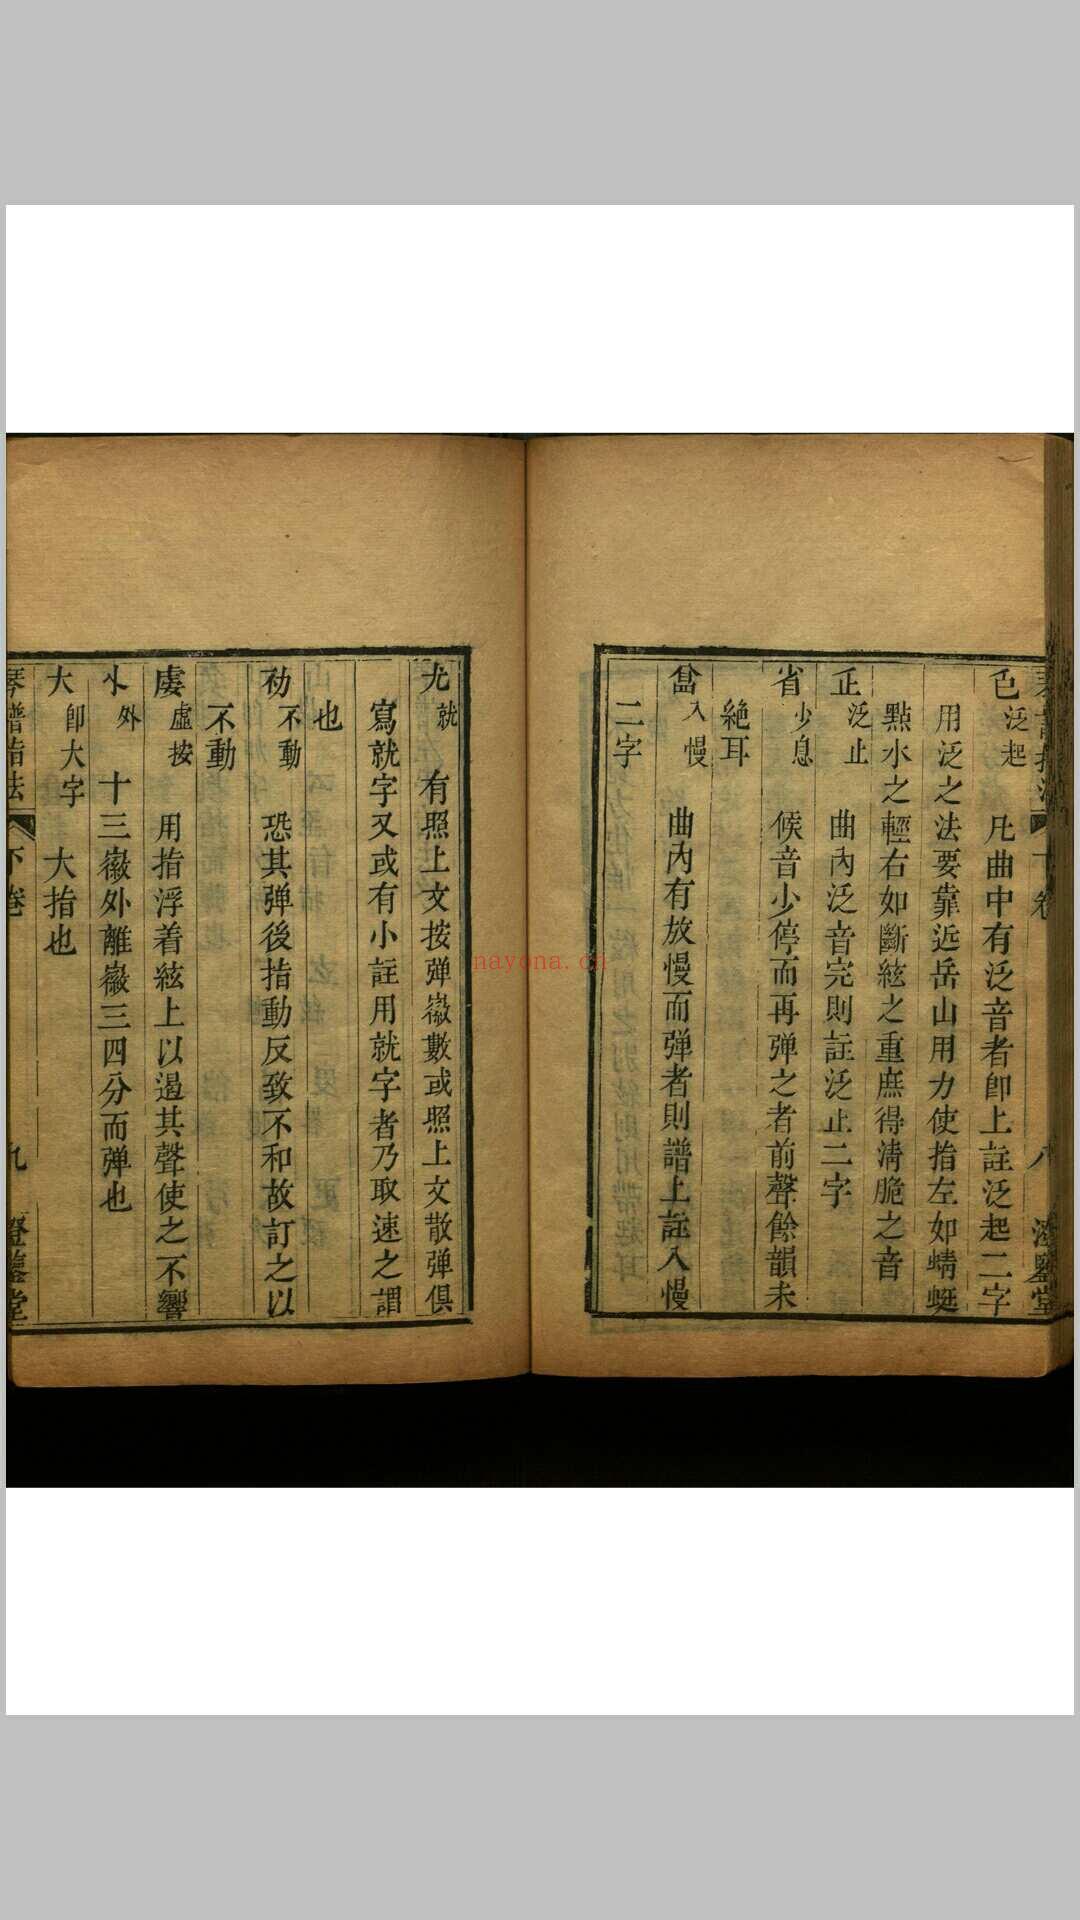 琴譜指法 下卷 八 澄鑒堂
色 泛起 凡曲中有泛音者卽上註泛起二字
用泛之法要靠近岳山用力使指左如蜻蜓
點水之輕右如斷絃之重庶得清脆之音
正 泛止 曲內泛音完則註泛止二字
省 少息 候音少停而再弹之者前聲餘韻未
絕耳
入慢 曲內有放慢而弹者則譜上註入慢
二字
尤 就 有照上文按弹徽數或照上文散弹俱
寫就字又或有小註用就字者乃取速之謂
也
不動 恐其弹後指動反致不和故訂之以
不動
虛按 用指浮着絃上以遏其聲使之不響
外 十三徽外離徽三四分而弹也
大 卽大字 大指也
琴譜指法 下卷 九 澄鑒堂
nayona.cn